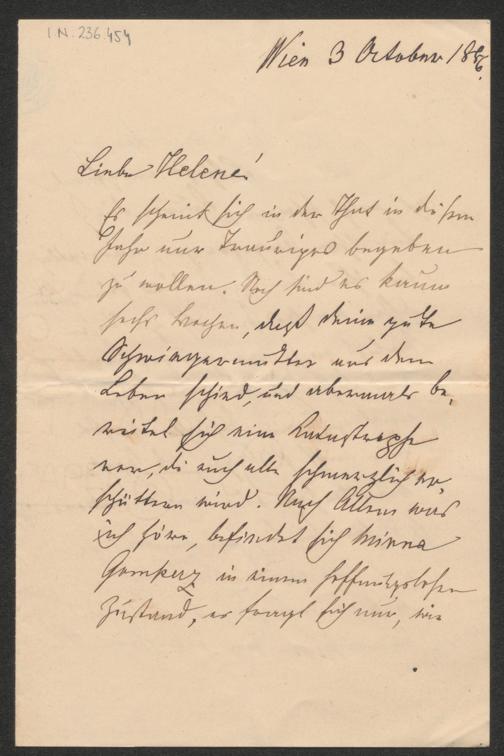 I.N. 236.454
Wien 3 October 1886.
Liebe Helene!
Es scheint sich in der That in diesem
Jahr nur Trauriges begeben
zu wollen. Noch sind es kaum
sechs Wochen, daß deine gute
Schwiegermutter aus dem
Leben schied, und abermals be,
reitet sich eine Katastrophe
vor, die euch alle schmerzlich er,
schüttern wird. Nach Allem was
ich höre, befindet sich Minna
Gomperz in einem hoffnungslosen
Zustand, es fragt sich nur, wie